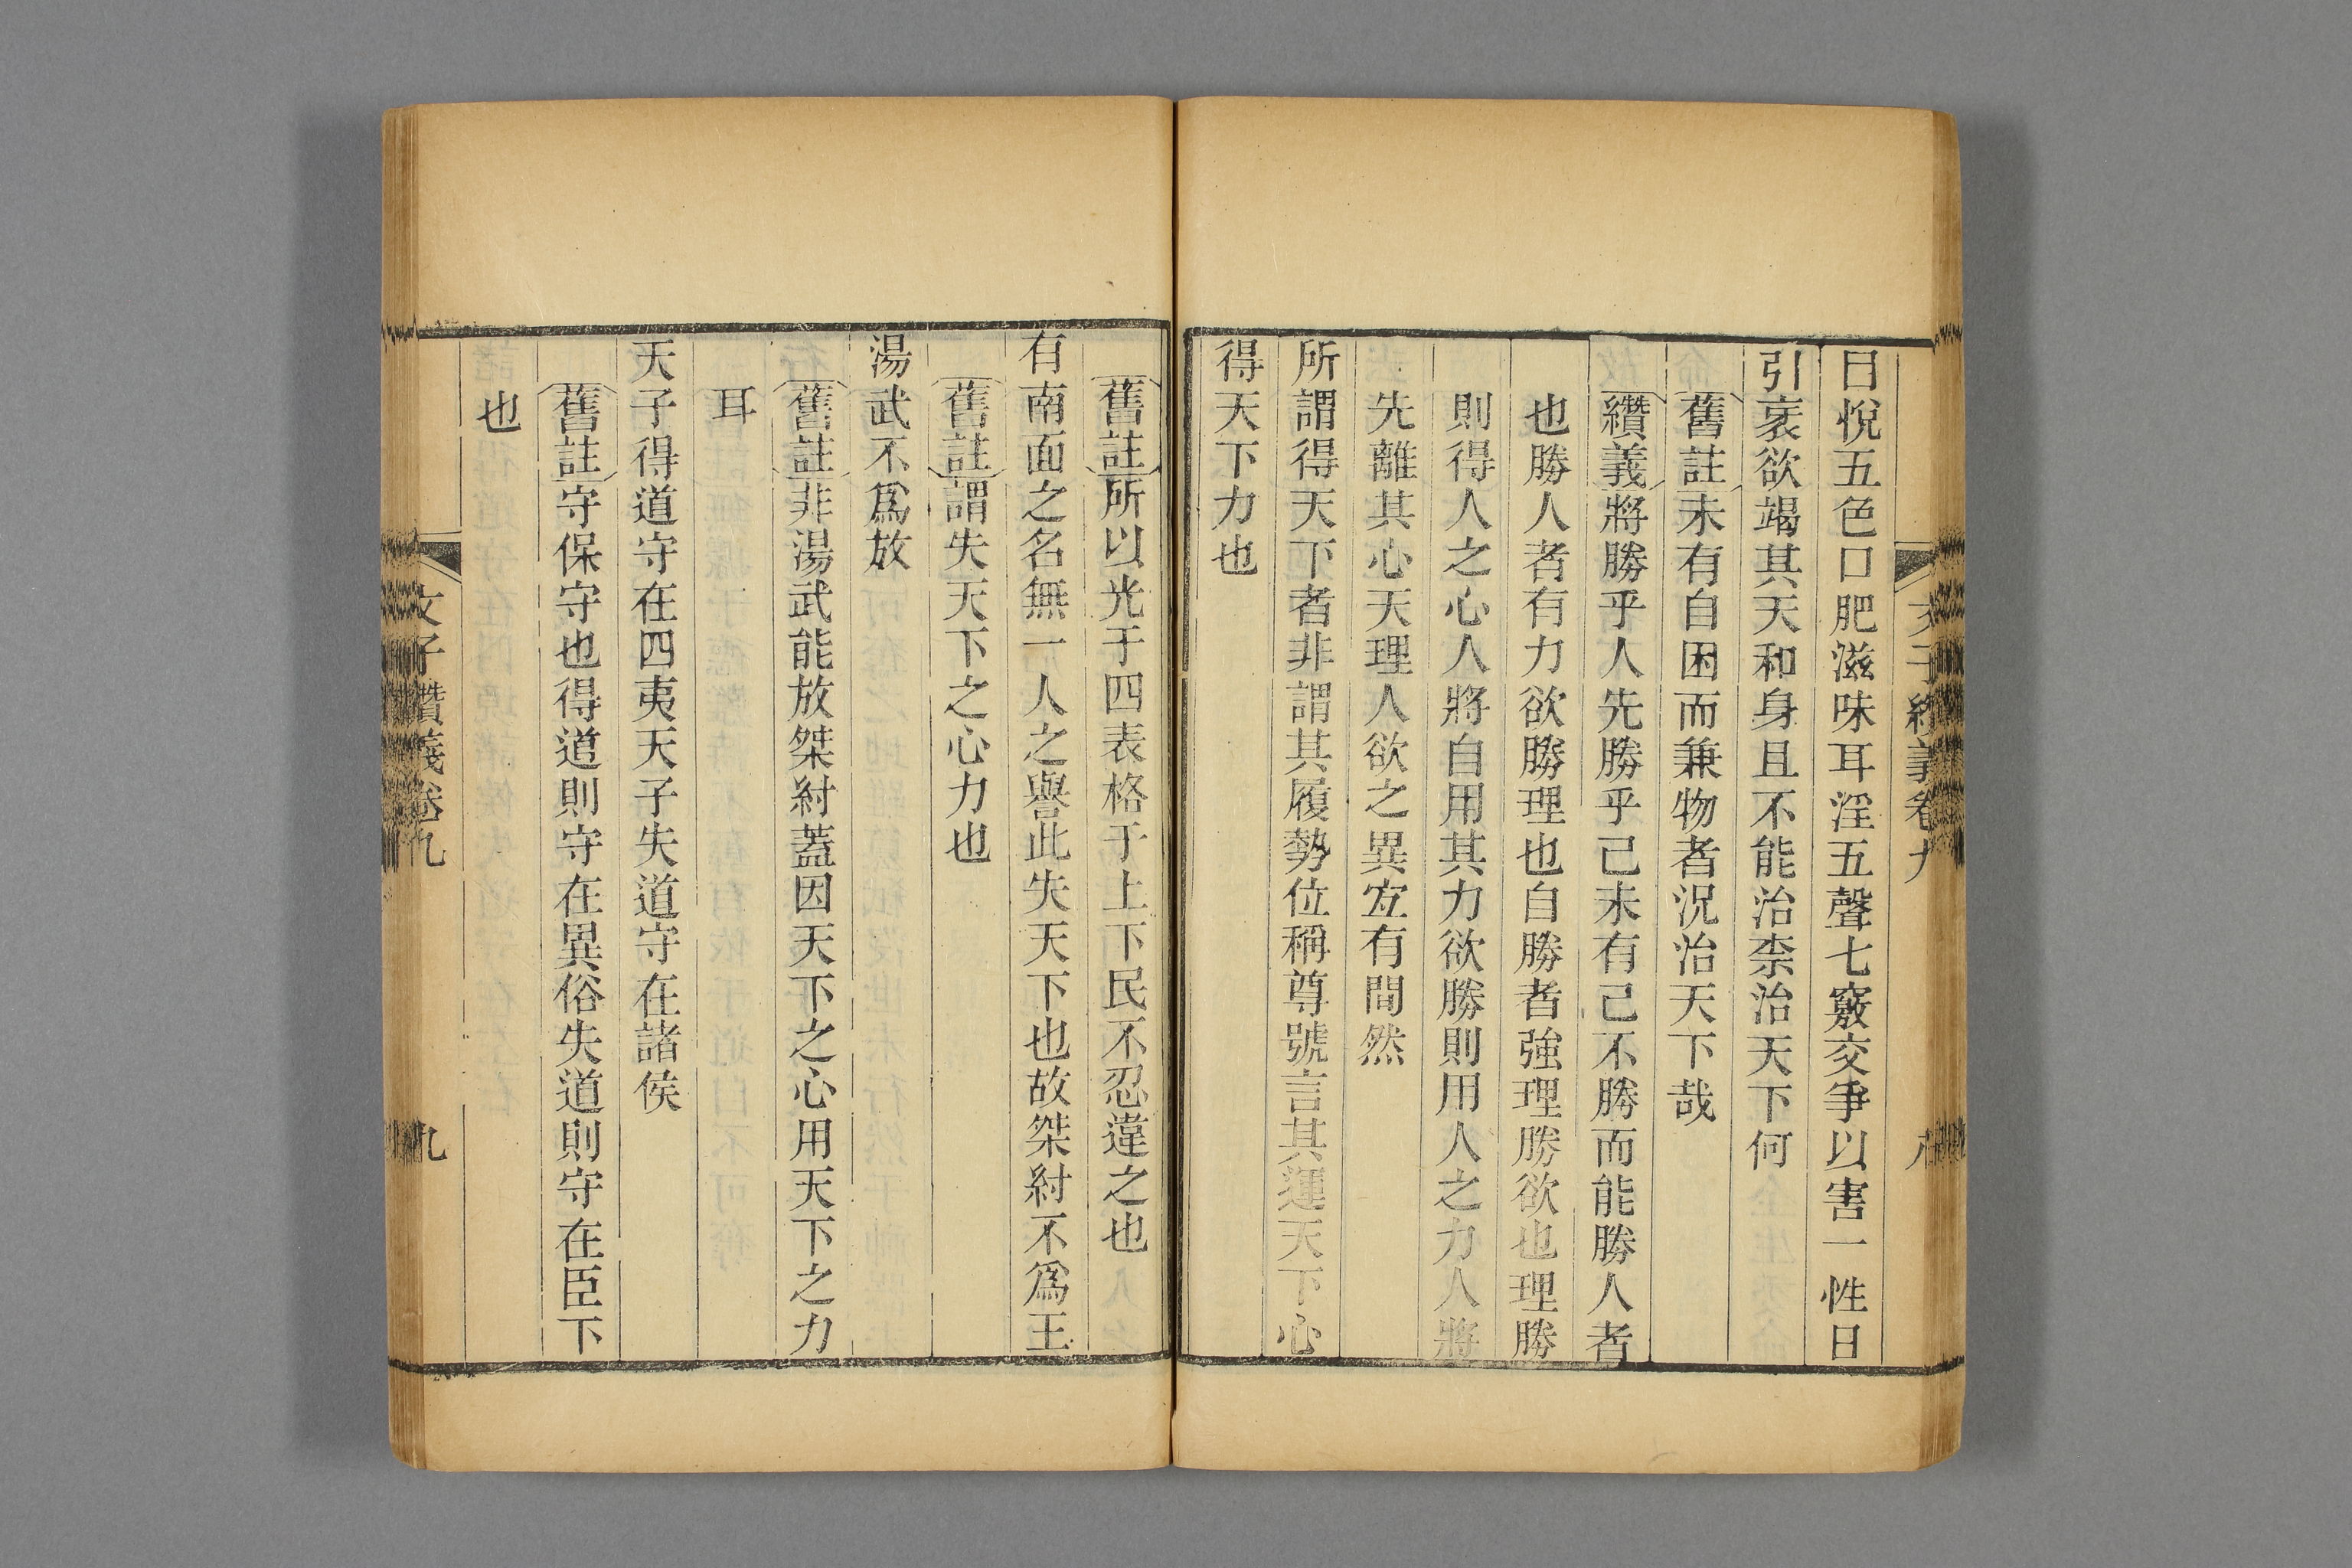 目悅五色口肥滋味耳淫五聲七竅交爭以害一性日
引衺欲竭其天和身且不能治柰治天下何
舊註未有自困而兼物者況治天下哉
纘義將勝乎人先勝乎己未有己不勝而能勝人者
也勝人者有力欲勝理也自勝者強理勝欲也理勝
則得人之心人將自用其力欲勝則用人之力人將
先離其心天理人欲之異宐有間然
所謂得天下者非謂其履勢位稱尊號言其運天下心
得天下力也
舊註所以光于四表格于上下民不忍違之也
有南面之名無一人之譽此失天下也故桀紂不爲王
舊註謂失天下之心力也
湯武不爲放
舊註非湯武能放桀紂蓋因天下之心用天下之力
耳
天子得道守在四夷天子失道守在諸侯
舊註守保守也得道則守在異俗失道則守在臣下
也
文子纘義卷九
九